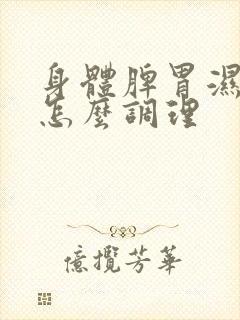 身體脾胃濕
怎麼調理
億攬芳華